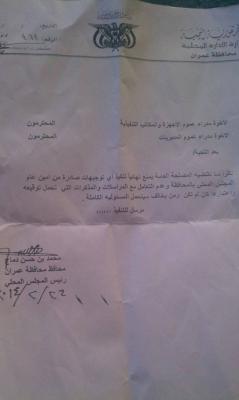 وزارة الادارة المحلية
محافظة عمران
الاخوة مدراء عموم الاجهزة والمكاتب التنفيذية المحترمون
الاخوة مدراء عموم المديريات المحترمون
بعد التحية،
نظرا لما تقتضيه المصلحة العامة يمنع نهائيا تنفيذ أي توجيهات صادرة من امين عام
المجلس المحلي بالمحافظة وعدم التعامل مع المراسلات والمذكرات التي تحمل توقيعه
كأن لم تكن ومن يخالف سيتحمل المسئولية الكاملة .
مرسل للتنفيذ
محمد بن حسن دماج
محافظ محافظة عمران
رئيس المجلس المحلي